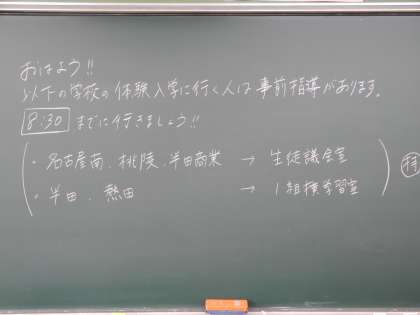 おはよう!!
以下の学校の体験入学に行く人は事前指導があります。
8:30 までに行きましょう!!
・名古屋南、桃陵、半田商業 → 生徒議会室
・半田、熱田 → 1組横学習室